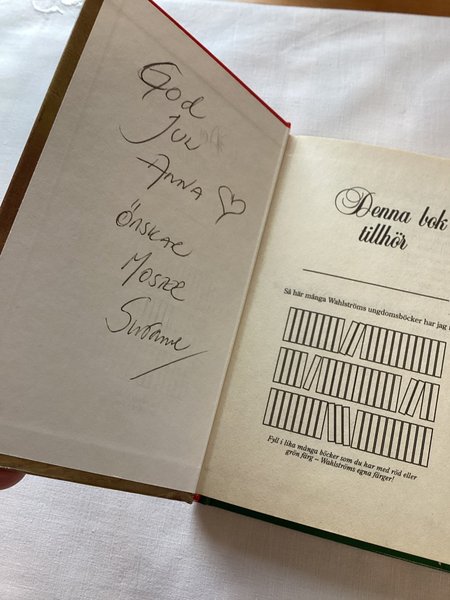 God
Jul
Anna
önskar
Moster
Susanne
Denna bok
tillhör
Så här många Wahlströms ungdomsböcker har jag
Fyll i lika många böcker som du har med röd eller
grön färg – Wahlströms egna färger!